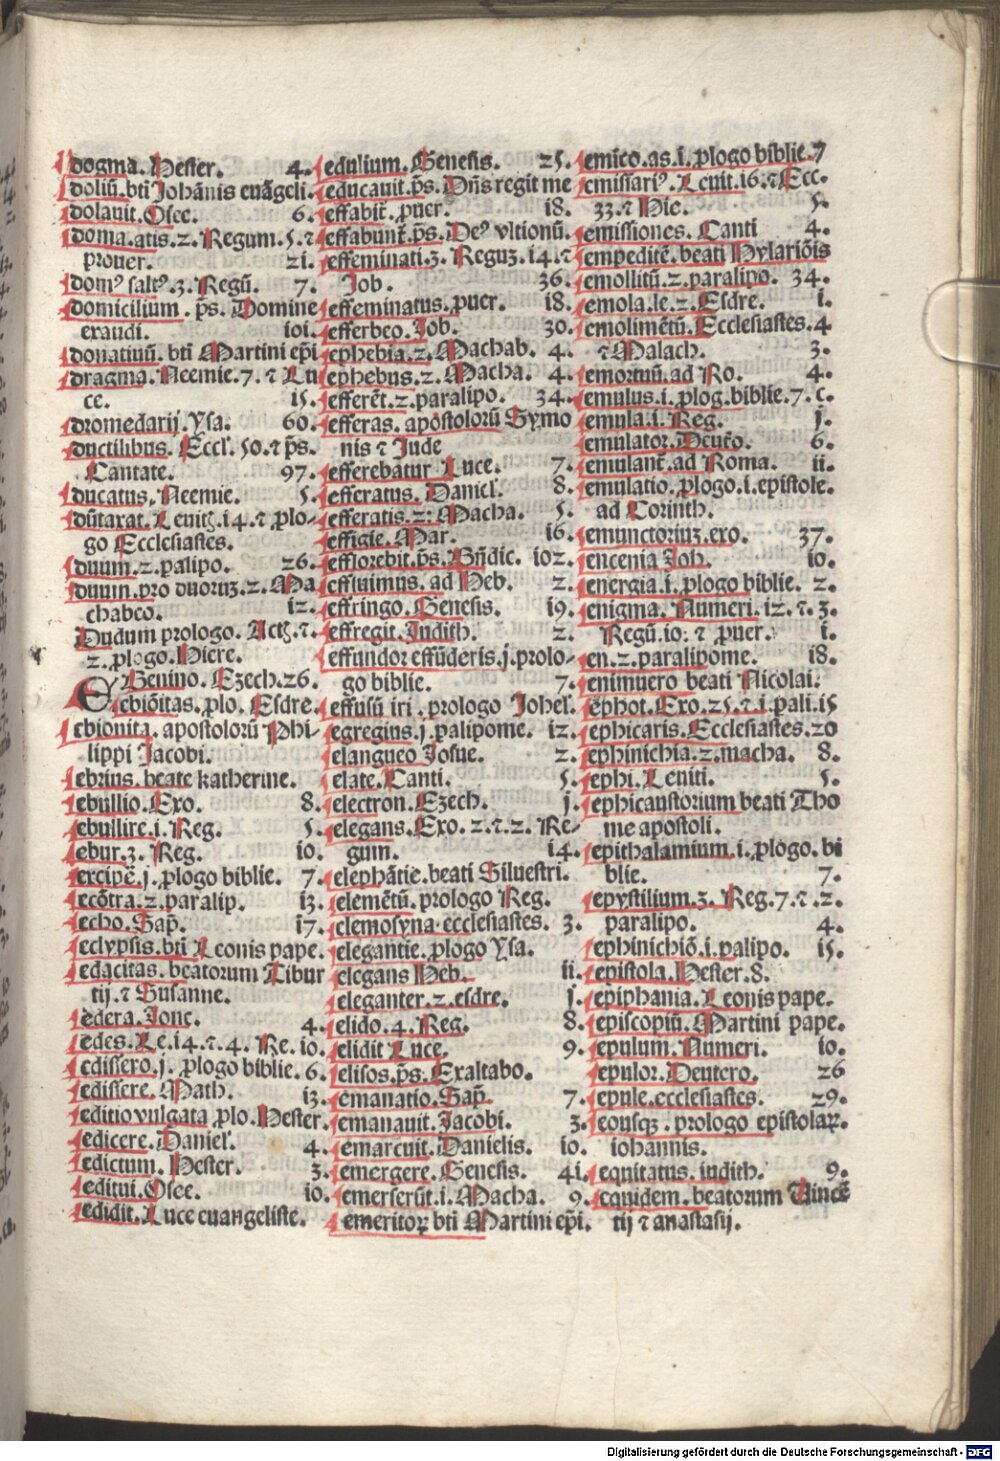 dogma. Hester. 4.
doliū. bti Johānis euāgeli.
dolauit. Osee. 6.
doma. atis. 2. Regum. 5. ⁊
prouer. 21.
domꝰ saltꝰ. 3. Regū. 7.
domicilium. ps̄. Domine
exaudi. 101.
donatiuū. bti Martini ep̄i
dragma. Neemie. 7. ⁊ Lu
ce. 15.
dromedarij. Ysa. 60.
ductilibus. Eccl'. 50. ⁊ ps̄.
Cantate. 97.
ducatus. Neemie. 5.
dūtaxat. Leuitꝫ. 14. ⁊ ꝓlo-
go Ecclesiastes.
duum. 2. ꝑalipo. 26.
duum. pro duorum. 2. Ma
chabeo. 12.
Dudum prologo. Actꝫ. ⁊.
2. ꝓlogo. Hiere.
EBenino. Ezech. 26.
ebiōitas. ꝓlo. Esdre.
ebionita. apostolorū Phi-
lippi Jacobi.
ebrius. beate katherine.
ebullio. Exo. 8.
ebullire. i. Reg. 5.
ebur. 3. Reg. 10.
excipē. j. ꝓlogo biblie. 7.
ecōtra. 2. paralip. 13.
echo. Sap̄. 17.
eclypsis. bti Leonis pape.
edacitas. beatorum Tibur
tij. ⁊ Susanne.
edera. Jone. 4.
edes. Le. 14. ⁊. 4. Re. 10.
edissero. j. ꝓlogo biblie. 6.
edissere. Math. 13.
editio vulgata ꝓlo. Hester
edicere. Daniel'. 4.
edictum. Hester. 3.
editui. Osee. 10.
edidit. Luce euangeliste.
edulium. Genesis. 25.
educauit. ps̄. Dn̄s regit me
effabit̄. ꝓuer. 18.
effabunt̄. ps̄. Deꝰ vltionū.
effeminati. 3. Regum. 14. ⁊
Job. 36.
effeminatus. ꝓuer. 18.
efferbeo. Job. 30.
ephebia. 2. Machab. 4.
ephebus. 2. Macha. 4.
efferēt. 2. paralipo. 34.
efferas. apostolorū Symo
nis ⁊ Jude
efferebatur Luce. 7.
efferatus. Daniel'. 8.
efferatis. 2. Macha. 5.
effigie. Mar. 16.
efflorebit. ps̄. Bn̄dic. 102.
effluimus. ad Heb. 2.
effringo. Genesis. 19.
effregit. Judith. 2.
effundor effūderis. j. prolo-
go biblie. 7.
effusū iri. prologo Johel.
egregius. j. palipome. 12.
elangueo Josue. 2.
elate. Canti. 5.
electron. Ezech. j.
elegans. Exo. 2. ⁊. 2. Re-
gum. 14.
elephātie. beati Siluestri.
elemētū. prologo Reg.
elemosyna. ecclesiastes. 3.
elegantie. ꝓlogo Ysa.
elegans Heb. 11.
eleganter. 2. esdre. j.
elido. 4. Reg. 8.
elidit Luce. 9.
elisos. ps̄. Exaltabo.
emanatio. Sap̄. 7.
emanauit. Jacobi. 3.
emarcuit. Danielis. 10.
emergere. Genesis. 41.
emerserūt. i. Macha. 9.
emeritoꝝ bti Martini ep̄i.
emico. as. i. ꝓlogo biblie. 7
emissariꝰ. Leuit. 16. ⁊ Ecc.
33. ⁊ Hie. 5.
emissiones. Canti 4.
empeditē. beati Hylariōis
emollitū. 2. paralipo. 34.
emola. le. 2. Esdre. i.
emolimētū. Ecclesiastes. 4
⁊ Malach. 3.
emortuū. ad Ro. 4.
emulus. i. ꝓlog. biblie. 7. c.
emula. i. Reg. j.
emulator. Deut̄o. 6.
emulant̄. ad Roma. 11.
emulatio. ꝓlogo. i. epistole.
ad Corinth.
emunctorium. exo. 37.
encenia Joh. 10.
energia. i. ꝓlogo biblie. 2.
enigma. Numeri. 12. ⁊. 3.
Regū. 10. ⁊ ꝓuer. i.
en. 2. paralipome. 18.
enimuero beati Nicolai.
ephot. Exo. 25. ⁊. i. pali. 15
ephicaris. Ecclesiastes. 20
ephinichia. 2. macha. 8.
ephi. Leuiti. 5.
ephicaustorium beati Tho
me apostoli.
epithalamium. i. ꝓlogo. bi
blie. 7.
epystilium. 3. Reg. 7. ⁊. 2.
paralipo. 4.
ephinichiō. i. palipo. 15.
epistola. Hester. 8.
epiphania. Leonis pape.
episcopiū. Martini pape.
epulum. Numeri. 10.
epulor. Deutero. 26
epule. ecclesiastes. 29.
eousqꝫ. prologo epistolaꝝ.
iohannis.
equitatus. iudith. 9.
equidem. beatorum Vincē
tij ⁊ anastasij.
Digitalisierung gefördert durch die Deutsche Forschungsgemeinschaft - DFG